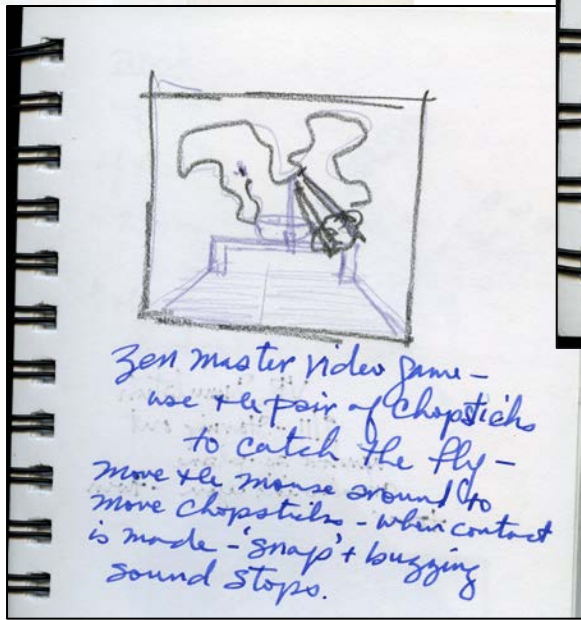 Zen master video game -
use the pair of chopsticks
to catch the fly -
move the mouse around to
move chopsticks - when contact
is made - 'snap' + buzzing
sound stops.